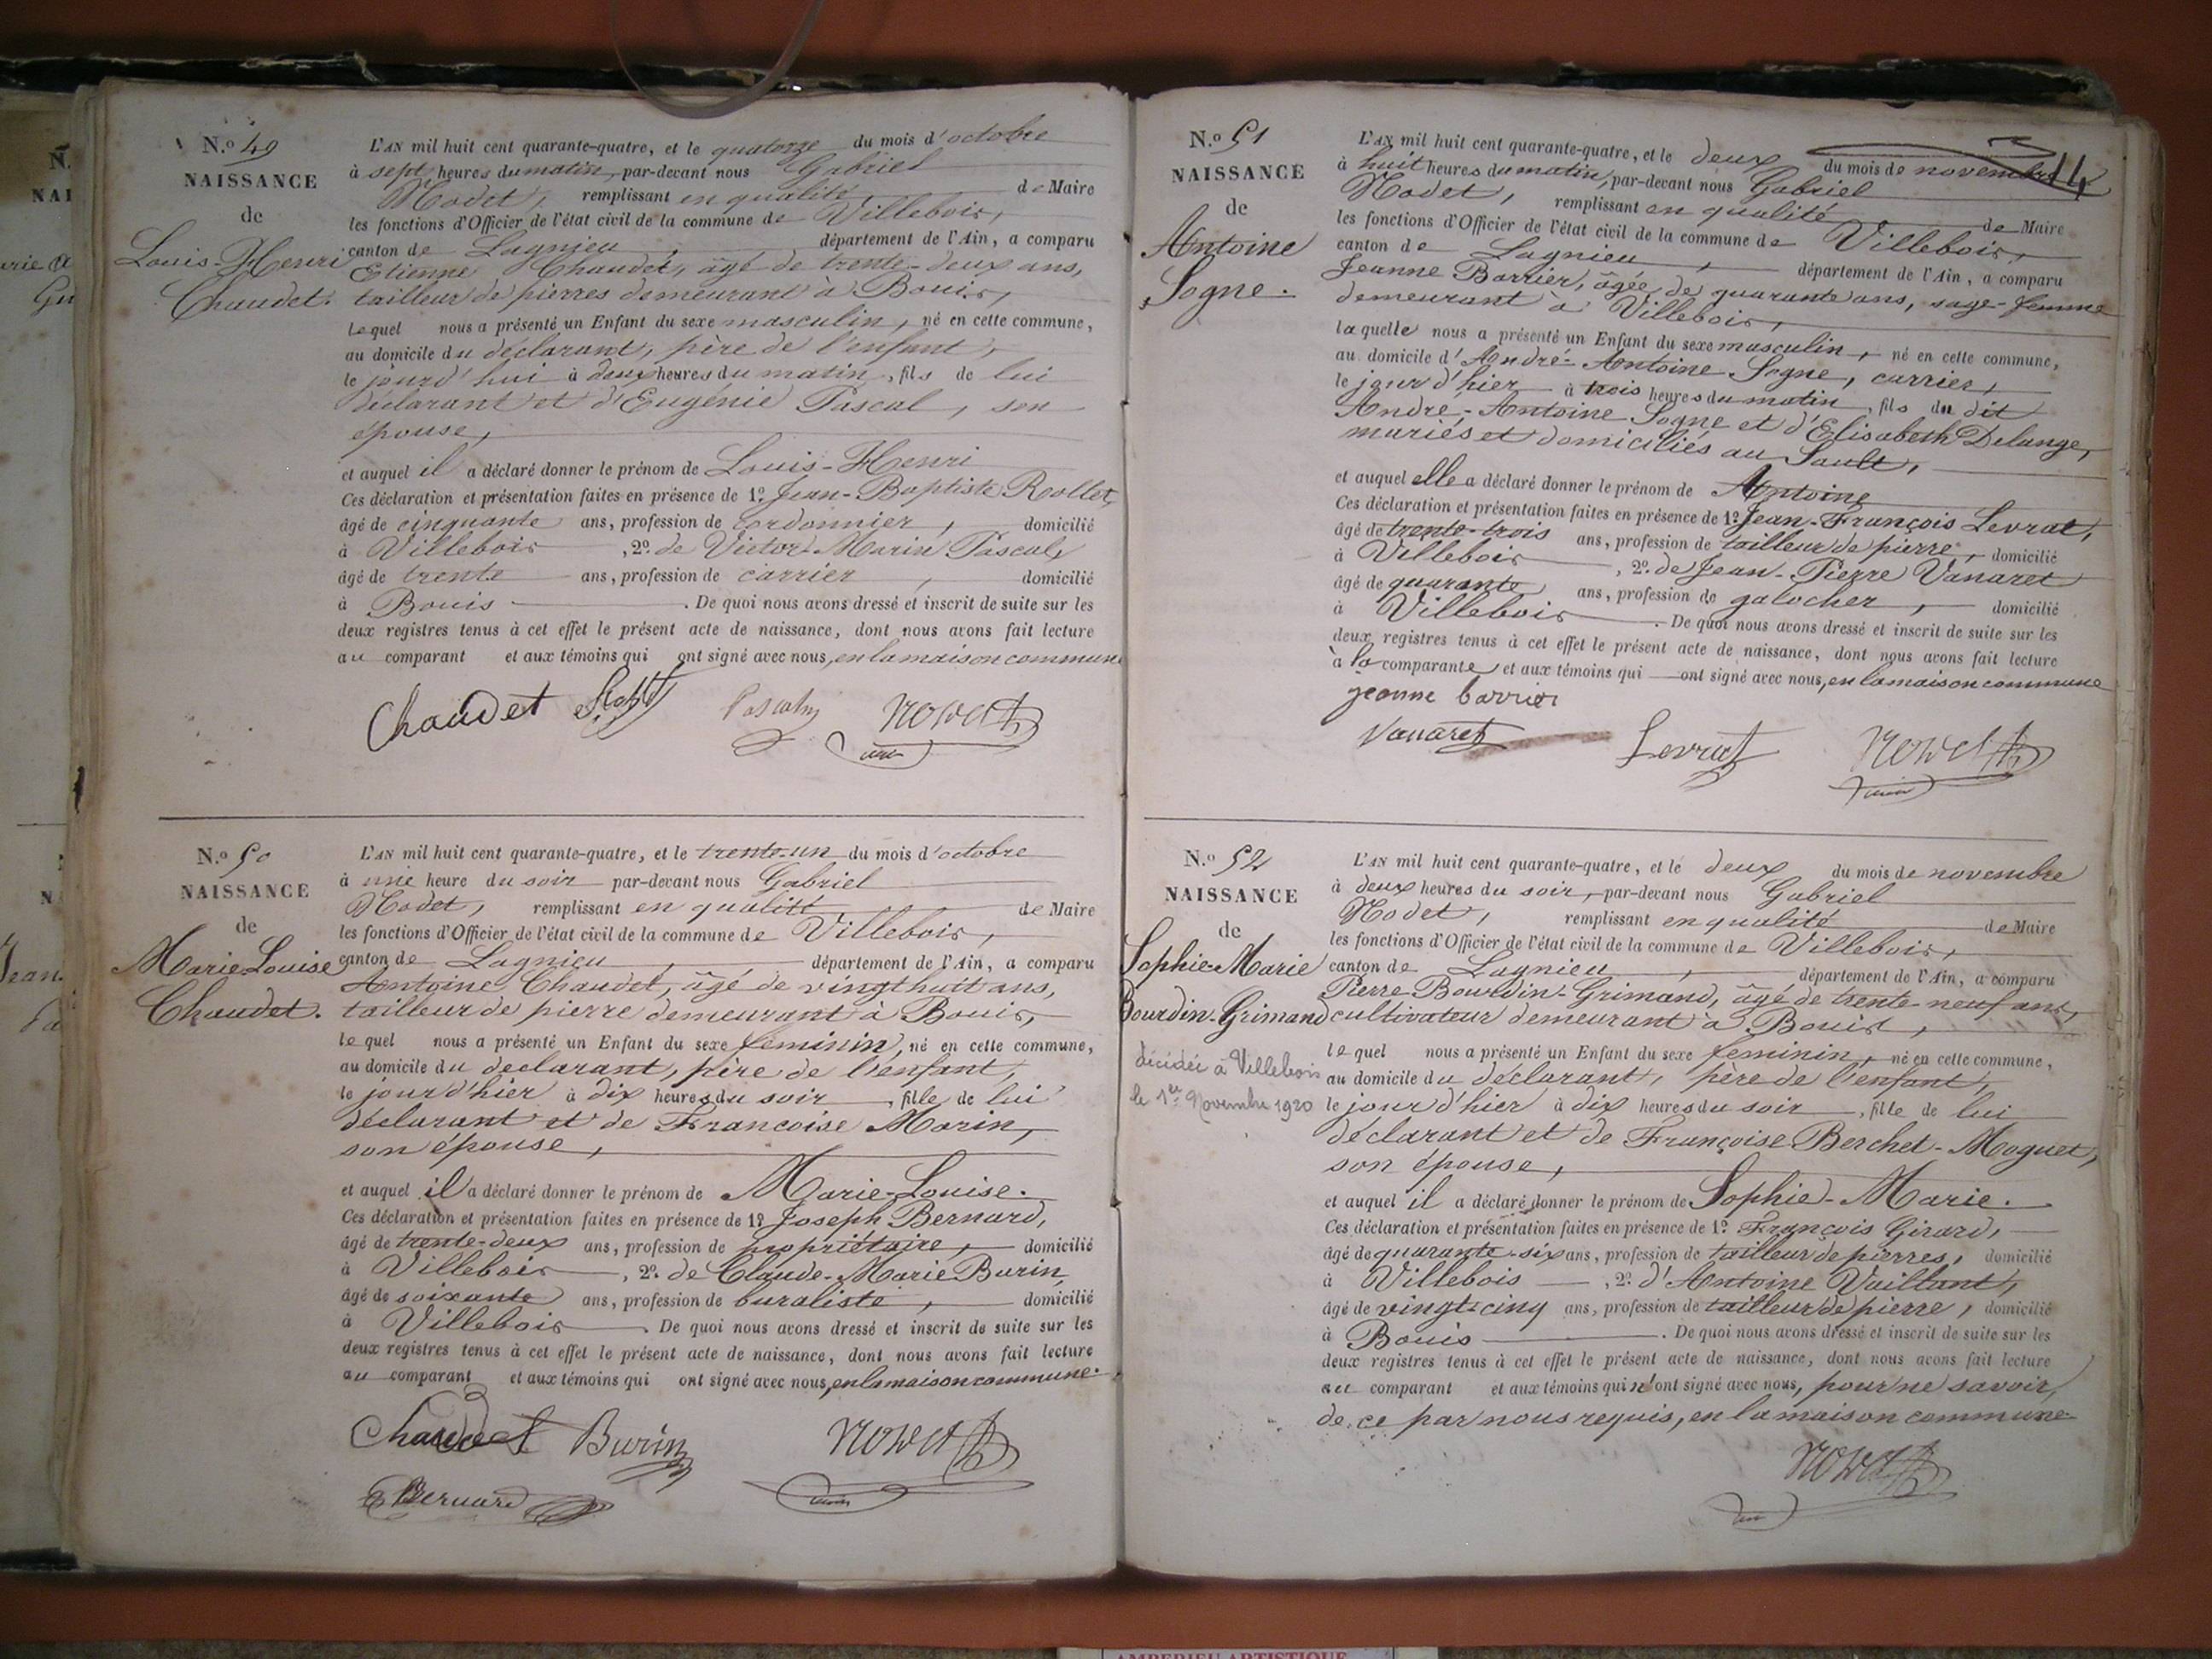 N.o 49
NAISSANCE
de
Louis-Henri
Chaudet.
L'AN mil huit cent quarante-quatre, et le quatorze du mois d'octobre
à sept heures du matin, par-devant nous Gabriel
Nodet, remplissant en qualité de Maire
les fonctions d'Officier de l'état civil de la commune de Villebois,
canton de Lagnieu, département de l'Ain, a comparu
Etienne Chaudet, âgé de trente-deux ans,
tailleur de pierres demeurant à Bouis,
lequel nous a présenté un Enfant du sexe masculin, né en cette commune,
au domicile du déclarant, père de l'enfant,
le jourd'hui à deux heures du matin, fils de lui
déclarant et d'Eugénie Pascal, son
épouse,
et auquel il a déclaré donner le prénom de Louis-Henri
Ces déclaration et présentation faites en présence de 1.o Jean-Baptiste Rollet,
âgé de cinquante ans, profession de cordonnier, domicilié
à Villebois, 2.o de Victor-Marin Pascal,
âgé de trente ans, profession de carrier, domicilié
à Bouis. De quoi nous avons dressé et inscrit de suite sur les
deux registres tenus à cet effet le présent acte de naissance, dont nous avons fait lecture
au comparant et aux témoins qui ont signé avec nous, en la maison commune
Chaudet Pascal Nodet
N.o 50
NAISSANCE
de
Marie Louise
Chaudet.
L'AN mil huit cent quarante-quatre, et le trente-un du mois d'octobre
à une heure du soir par-devant nous Gabriel
Nodet, remplissant en qualité de Maire
les fonctions d'Officier de l'état civil de la commune de Villebois,
canton de Lagnieu, département de l'Ain, a comparu
Antoine Chaudet, âgé de vingt huit ans,
tailleur de pierre demeurant à Bouis,
lequel nous a présenté un Enfant du sexe féminin, né en cette commune,
au domicile du déclarant, père de l'enfant,
le jour d'hier à dix heures du soir, fille de lui
déclarant et de Françoise Marin,
son épouse,
et auquel il a déclaré donner le prénom de Marie-Louise.
Ces déclaration et présentation faites en présence de 1.o Joseph Bernard,
âgé de trente-deux ans, profession de propriétaire, domicilié
à Villebois, 2.o de Claude-Marie Burin,
âgé de soixante ans, profession de buraliste, domicilié
à Villebois. De quoi nous avons dressé et inscrit de suite sur les
deux registres tenus à cet effet le présent acte de naissance, dont nous avons fait lecture
au comparant et aux témoins qui ont signé avec nous, en la maison commune.
Chaudet Burin Nodet
Bernard
N.o 51
NAISSANCE
de
Antoine
Sogne.
14
L'AN mil huit cent quarante-quatre, et le deux du mois de novembre
à huit heures du matin, par-devant nous Gabriel
Nodet, remplissant en qualité de Maire
les fonctions d'Officier de l'état civil de la commune de Villebois,
canton de Lagnieu, département de l'Ain, a comparu
Jeanne Barrier, âgée de quarante ans, sage-femme
demeurant à Villebois,
laquelle nous a présenté un Enfant du sexe masculin, né en cette commune,
au domicile d'André-Antoine Sogne, carrier,
le jour d'hier à trois heures du matin, fils du dit
André-Antoine Sogne et d'Elisabeth Delange,
mariés et domiciliés au Sault,
et auquel elle a déclaré donner le prénom de Antoine
Ces déclaration et présentation faites en présence de 1.o Jean-François Levrat,
âgé de trente-trois ans, profession de tailleur de pierre, domicilié
à Villebois, 2.o de Jean-Pierre Vanaret
âgé de quarante ans, profession de galocher, domicilié
à Villebois. De quoi nous avons dressé et inscrit de suite sur les
deux registres tenus à cet effet le présent acte de naissance, dont nous avons fait lecture
à la comparante et aux témoins qui ont signé avec nous, en la maison commune
jeanne barrier
Vanaret Levrat Nodet
N.o 52
NAISSANCE
de
Sophie-Marie
Bourdin-Grimand
décédée à Villebois
le 1er Novembre 1920
L'AN mil huit cent quarante-quatre, et le deux du mois de novembre
à deux heures du soir, par-devant nous Gabriel
Nodet, remplissant en qualité de Maire
les fonctions d'Officier de l'état civil de la commune de Villebois,
canton de Lagnieu, département de l'Ain, a comparu
Pierre Bourdin-Grimand, âgé de trente-neuf ans,
cultivateur demeurant à Bouis,
lequel nous a présenté un Enfant du sexe féminin, né en cette commune,
au domicile du déclarant, père de l'enfant,
le jour d'hier à dix heures du soir, fille de lui
déclarant et de Françoise Berchet-Moguet,
son épouse,
et auquel il a déclaré donner le prénom de Sophie-Marie.
Ces déclaration et présentation faites en présence de 1.o François Girard,
âgé de quarante-six ans, profession de tailleur de pierres, domicilié
à Villebois, 2.o d'Antoine Vaillant,
âgé de vingt-cinq ans, profession de tailleur de pierre, domicilié
à Bouis. De quoi nous avons dressé et inscrit de suite sur les
deux registres tenus à cet effet le présent acte de naissance, dont nous avons fait lecture
au comparant et aux témoins qui n'ont signé avec nous, pour ne savoir,
de ce par nous requis, en la maison commune
Nodet
AMBERIEU ARTISTIQUE